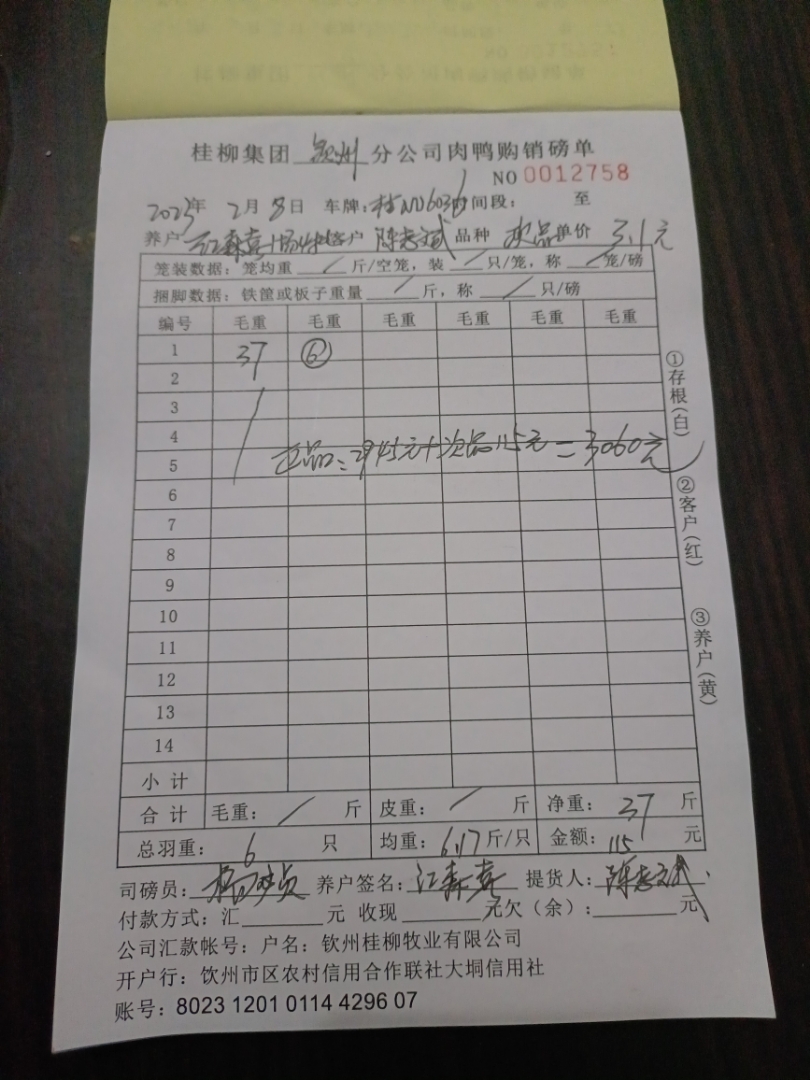 桂柳集团 钦州 分公司肉鸭购销磅单
NO 0012758
2023年 2月 8日 车牌:桂N 间段: 至
养户 江森喜 客户 陈志斌 品种 次品 单价 3.1元
笼装数据:笼均重 / 斤/空笼,装 / 只/笼,称 / 笼/磅
捆脚数据:铁筐或板子重量 / 斤,称 / 只/磅
编号 毛重 毛重 毛重 毛重 毛重 毛重
1 37 ⑥
2
3
4
正品:2945元+次品115元=3060元
5
6
7
8
9
10
11
12
13
14
小计
合计 毛重: / 斤 皮重: / 斤 净重: 37 斤
总羽重: 6 只 均重: 6.17 斤/只 金额: 115 元
司磅员: 养户签名: 江森喜 提货人: 陈志斌
付款方式:汇 元 收现 元欠(余): 元
公司汇款帐号:户名:钦州桂柳牧业有限公司
开户行:饮州市区农村信用合作联社大垌信用社
账号:8023 1201 0114 4296 07
①存根(白)
②客户(红)
③养户(黄)